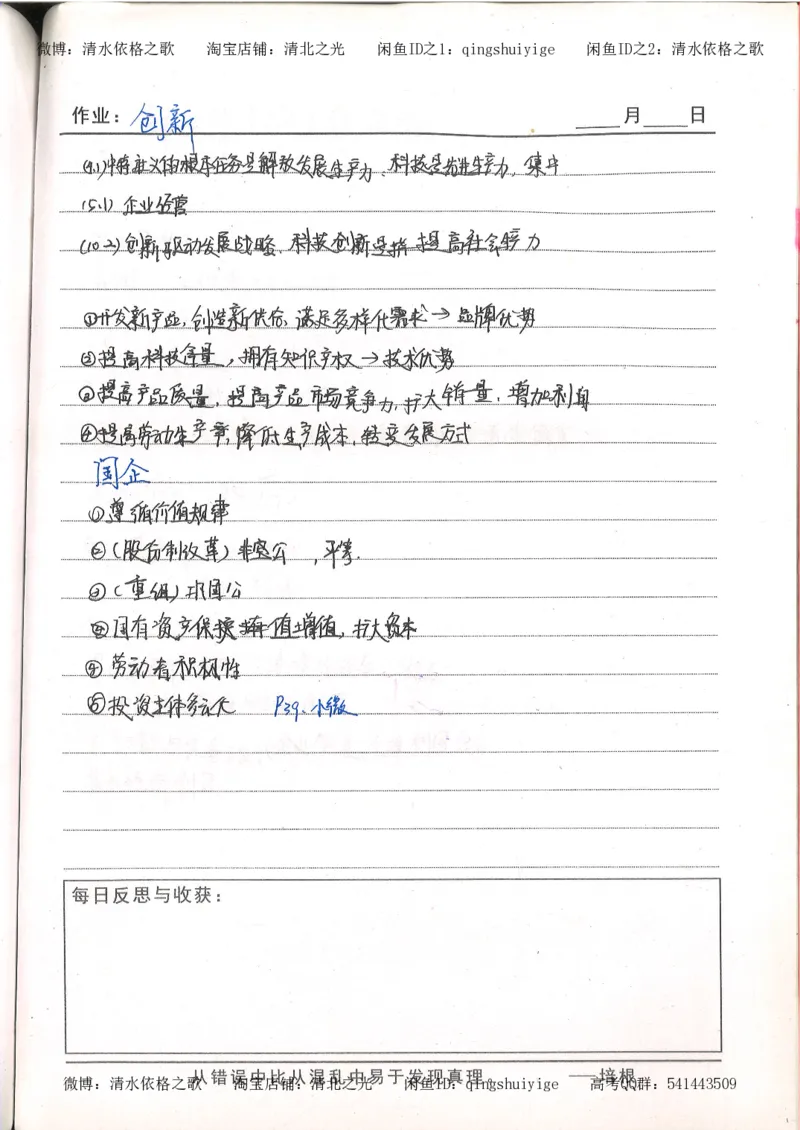 微博：清水依格之歌 淘宝店铺：清北之光 闲鱼ID之1：qingshuiyige 闲鱼ID之2：清水依格之歌
作业：创新 月 日
(4.1)中特社义的根本任务是解放发展生产力、科技是先进生产力，集中
(5.1) 企业经营
(10.2)创新驱动发展战略、科技创新是 提高社会 力
①开发新产品，创造新供给，满足多样化需求→品牌优势
②提高科技含量，拥有知识产权→技术优势
③提高产品质量，提高产品市场竞争力，扩大销量，增加利润
④提高劳动生产率，降低生产成本，转变发展方式
国企
①遵循价值规律
②(股份制改革) 非 公 ，平等.
③(重组)
④国有资产保 值增值，扩大资本
④劳动者积极性
⑤投资主体多元化 P39、小微
每日反思与收获：
从错误中比从混乱中易于发现真理。 ——培根
微博：清水依格之歌 淘宝店铺：清北之光 闲鱼ID：qingshuiyige 高考QQ群：541443509